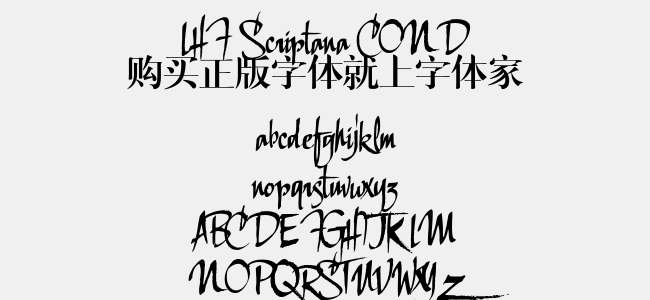 LHF Scriptana COND
购买正版字体就上字体家
abcdefghijklm
nopqrstuvwxyz
ABCDEFGHIJKLM
NOPQRSTUVWXYZ